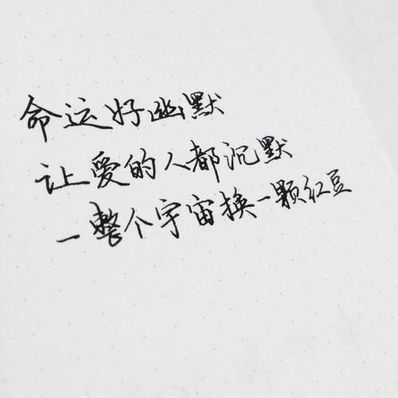 命运好幽默
让爱的人都沉默
一整个宇宙换一颗红豆